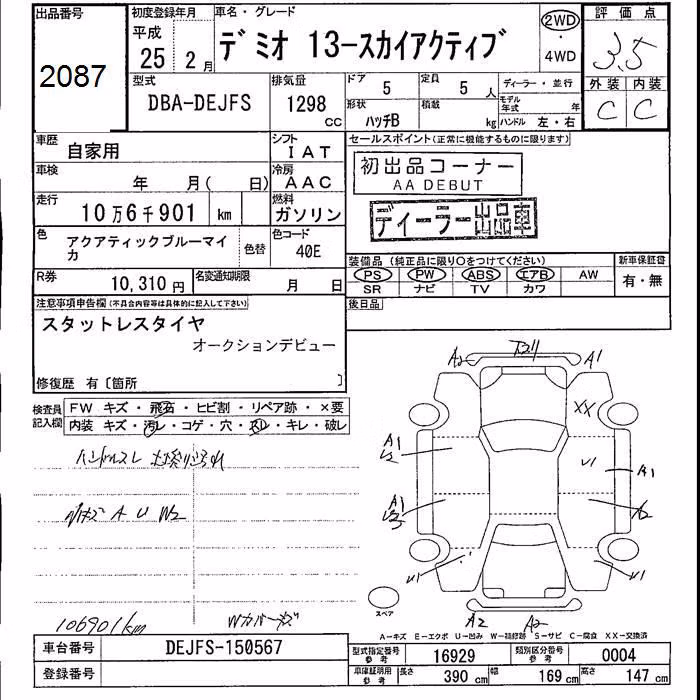 出品番号 初度登録年月 車名・グレード 評価点
2087
平成 25年 2月
デミオ 13-スカイアクティブ
2WD ・ 4WD
3.5
型式 DBA-DEJFS
排気量 1298 CC
ドア 5
定員 5人
ディーラー・並行
外装 内装
形状 ハッチB
積載 kg
モデル年式 年
ハンドル 左・右
C C
車歴 自家用
シフト IAT
セールスポイント(正常に機能するものに限ります)
車検 年 月( 日)
冷房 AAC
初出品コーナー
AA DEBUT
走行 10万6千901 km
燃料 ガソリン
ディーラー出品車
色 アクアティックブルーマイカ
色替
色コード 40E
装備品(純正品に限り○をつけてください) 新車保証書
PS PW ABS エアB AW 有・無
SR ナビ TV カワ
R券 10,310円
名変通知期限 月 日
後日品
注意事項申告欄(不具合内容等は具体的に記入して下さい)
スタットレスタイヤ
オークションデビュー
修復歴 有〔箇所 〕
検査員記入欄
FW キズ・飛石・ヒビ割・リペア跡・×要
内装 キズ・汚レ・コゲ・穴・スレ・キレ・破レ
ハンドルスレ
A U W2
106901km
Wカバーキズ
A2 A1
XX
A1 U2
U1 A1
A1
A2
U1 U1
スペア
A2 A2
A-キズ E-エクボ U-凹み W-補修跡 S-サビ C-腐食 XX-交換済
車台番号 DEJFS-150567
型式指定番号 参考 16929
類別区分番号 参考 0004
登録番号
車庫証明用 参考 長さ 390 cm 幅 169 cm 高さ 147 cm